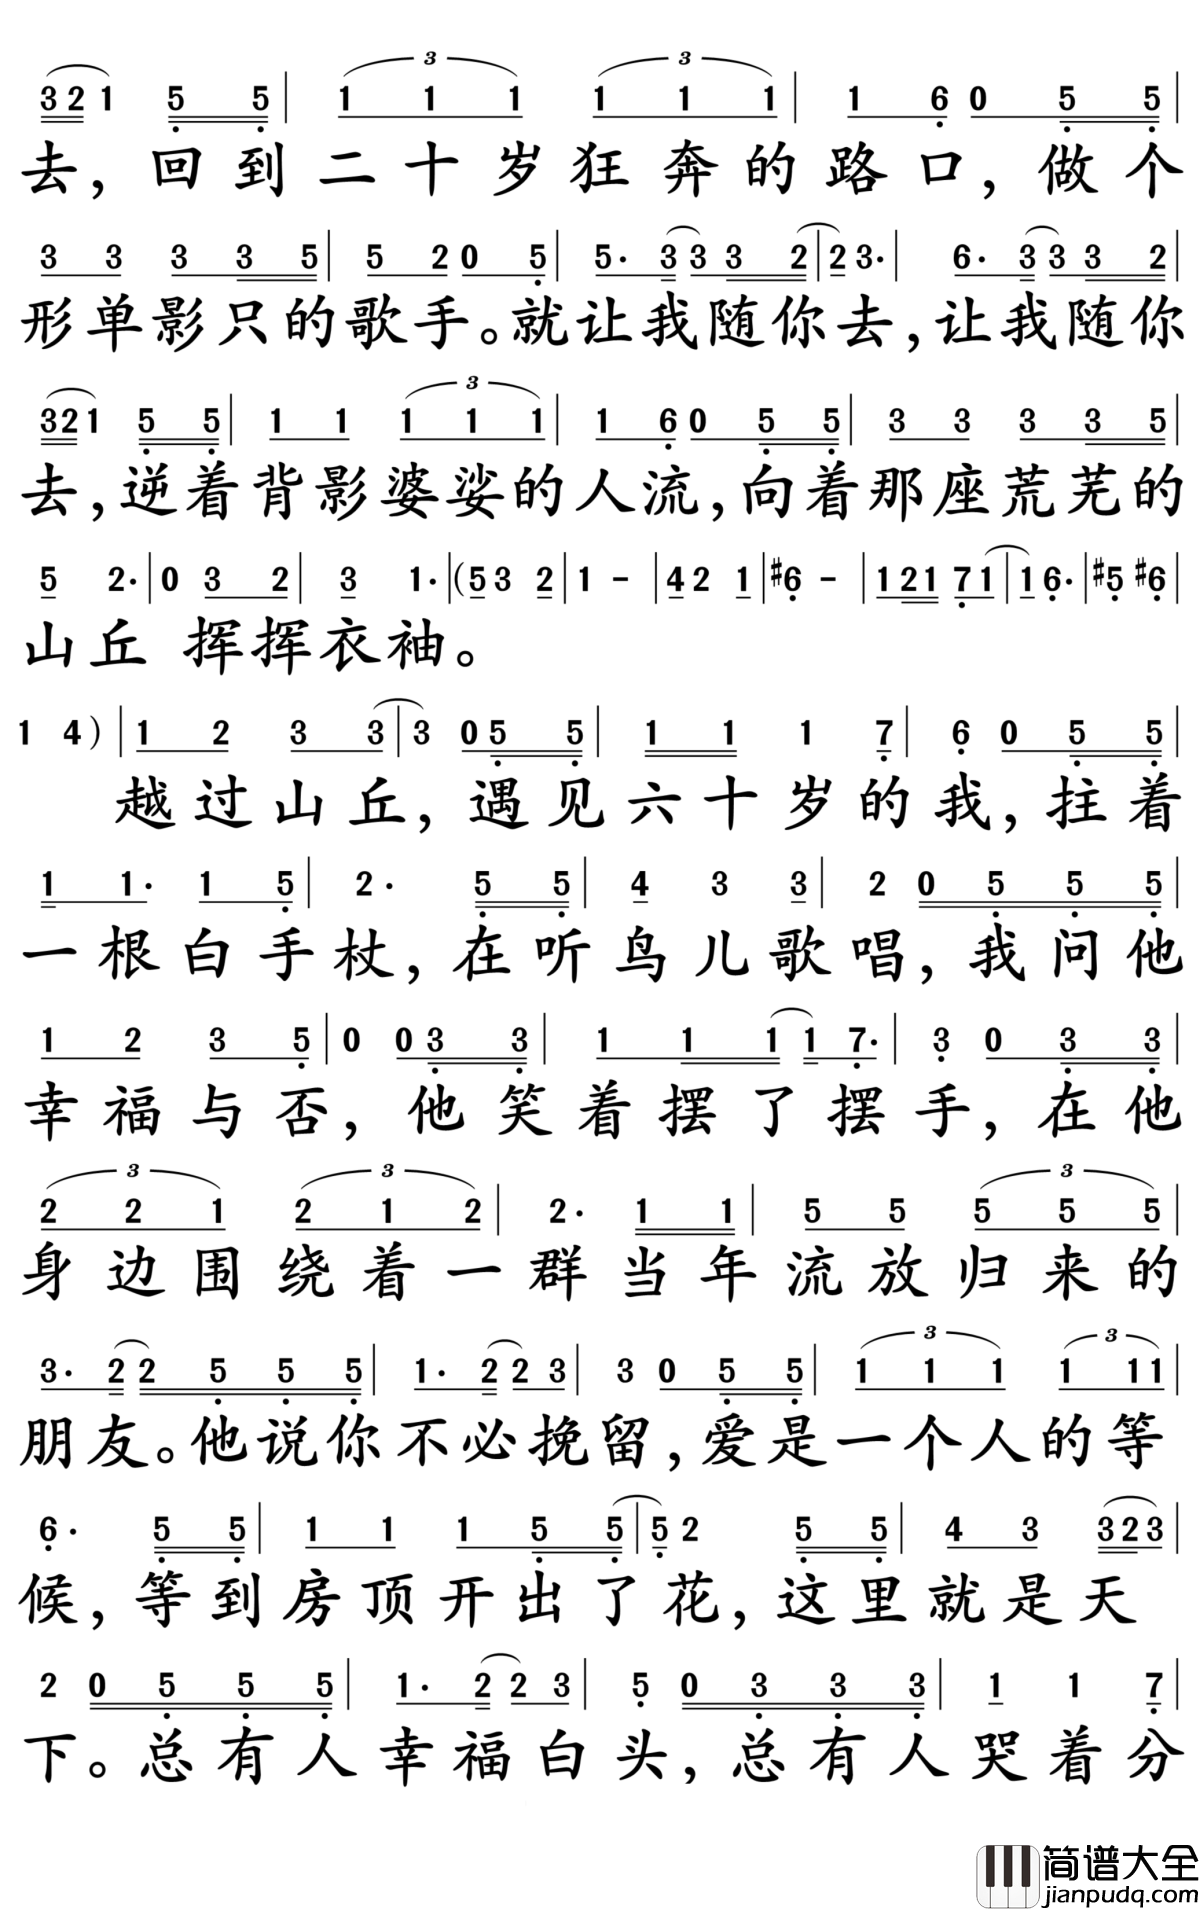 3
3
321 5 5 | 1 1 1 1 1 1 | 1 6 0 5 5 |
去，回到二十岁狂奔的路口，做个
3 3 3 3 5 | 5 2 0 5 | 5· 3 3 3 2 | 2 3· | 6· 3 3 3 2 |
形单影只的歌手。就让我随你去，让我随你
3
321 5 5 | 1 1 1 1 1 | 1 6 0 5 5 | 3 3 3 3 5 |
去，逆着背影婆娑的人流，向着那座荒芜的
5 2· | 0 3 2 | 3 1· | (5 3 2 | 1 - | 4 2 1 | #6 - | 121 71 | 1 6· | #5 #6 |
山丘 挥挥衣袖。
1 4) | 1 2 3 3 | 3 0 5 5 | 1 1 1 7 | 6 0 5 5 |
越过山丘，遇见六十岁的我，拄着
1 1· 1 5 | 2· 5 5 | 4 3 3 | 2 0 5 5 5 |
一根白手杖，在听鸟儿歌唱，我问他
1 2 3 5 | 0 0 3 3 | 1 1 1 1 7· | 3 0 3 3 |
幸福与否，他笑着摆了摆手，在他
3 3 3
2 2 1 2 1 2 | 2· 1 1 | 5 5 5 5 5 |
身边围绕着一群当年流放归来的
3 3
3· 2 2 5 5 5 | 1· 2 2 3 | 3 0 5 5 | 1 1 1 1 1 1 |
朋友。他说你不必挽留，爱是一个人的等
6· 5 5 | 1 1 1 5 5 | 5 2 5 5 | 4 3 323 |
候，等到房顶开出了花，这里就是天
2 0 5 5 5 | 1· 2 2 3 | 5 0 3 3 3 | 1 1 7 |
下。总有人幸福白头，总有人哭着分
简谱大全
jianpudq.com